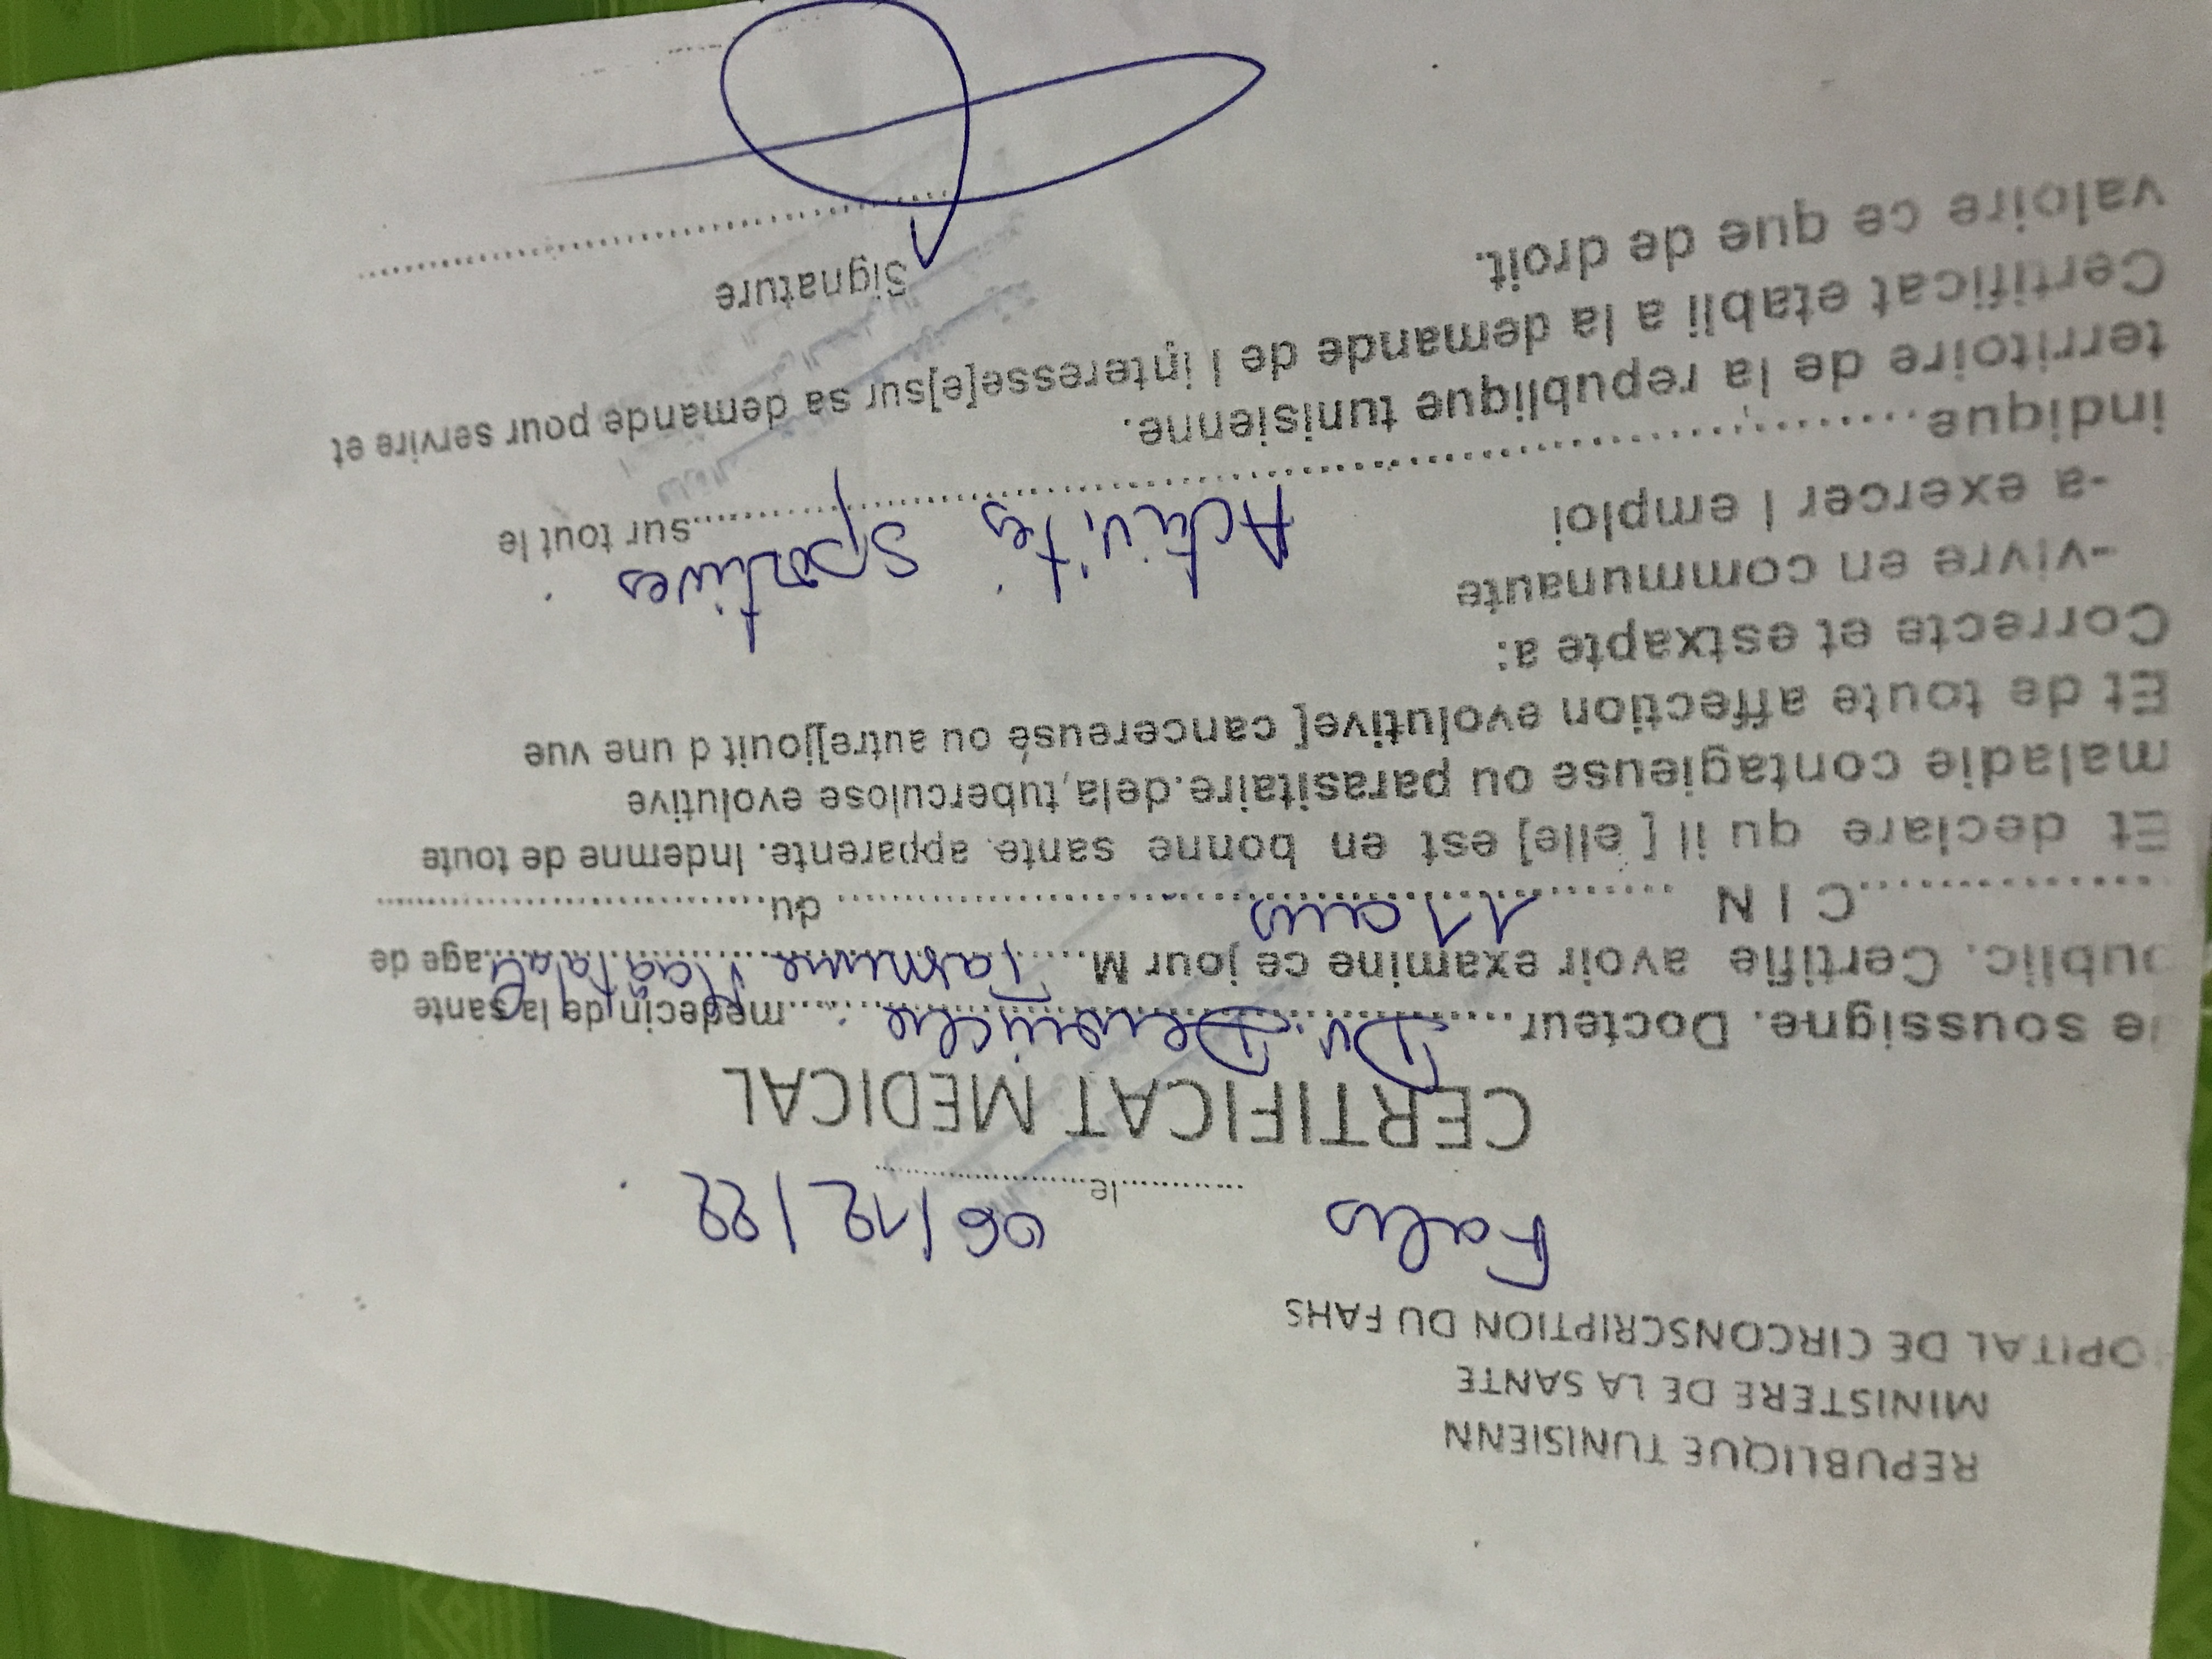 REPUBLIQUE TUNISIENN
MINISTERE DE LA SANTE
OPITAL DE CIRCONSCRIPTION DU FAHS
Fahs le 06/12/22
CERTIFICAT MEDICAL
Je soussigne. Docteur Dr. medecin de la sante
public. Certifie avoir examine ce jour M age de
11 ans
C I N du
Et declare qu il [ elle] est en bonne sante. apparente. Indemne de toute
maladie contagieuse ou parasitaire.dela,tuberculose evolutive
Et de toute affection evolutive[ cancereuse ou autre]jouit d une vue
Correcte et estxapte a:
-vivre en communaute
-a exercer l emploi
Activités sportives.
indique sur tout le
territoire de la republique tunisienne.
Certificat etabli a la demande de l interesse[e]sur sa demande pour servire et
valoire ce que de droit.
Signature